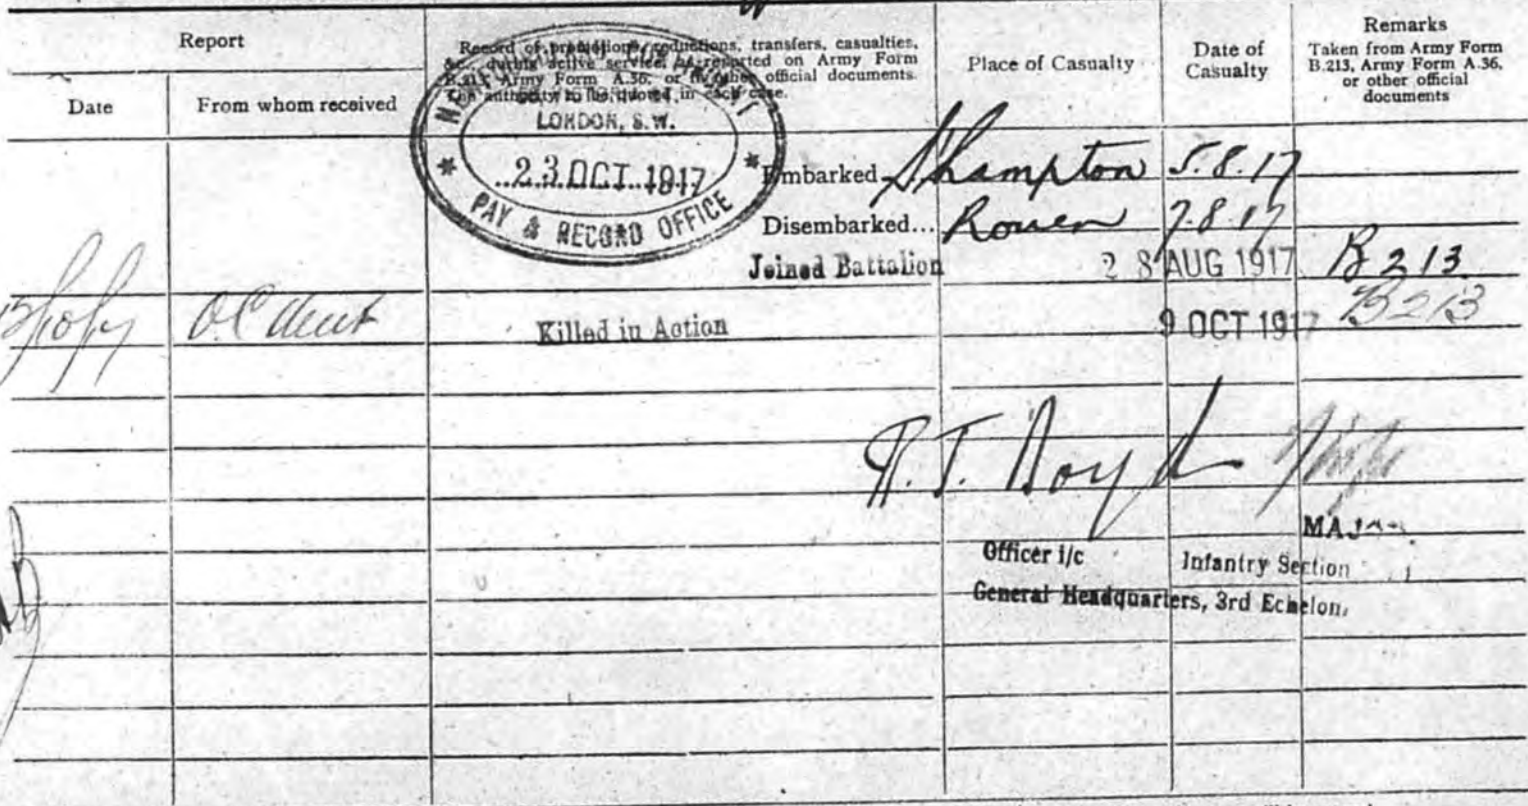 Report
Date
From whom received
Record of promotions, reductions, transfers, casualties,
&c., during active service, as reported on Army Form
B.213, Army Form A.36, or in other official documents.
The authority to be quoted in each case.
Place of Casualty
Date of
Casualty
Remarks
Taken from Army Form
B.213, Army Form A.36,
or other official
documents
LONDON, S.W.
23 OCT 1917
PAY & RECORD OFFICE
Embarked S'hampton 5.8.17
Disembarked... Rouen 7.8.17
Joined Battalion 28 AUG 1917 B 213
O.C. Killed in Action 9 OCT 1917 B213
MAJOR
Officer i/c Infantry Section
General Headquarters, 3rd Echelon,